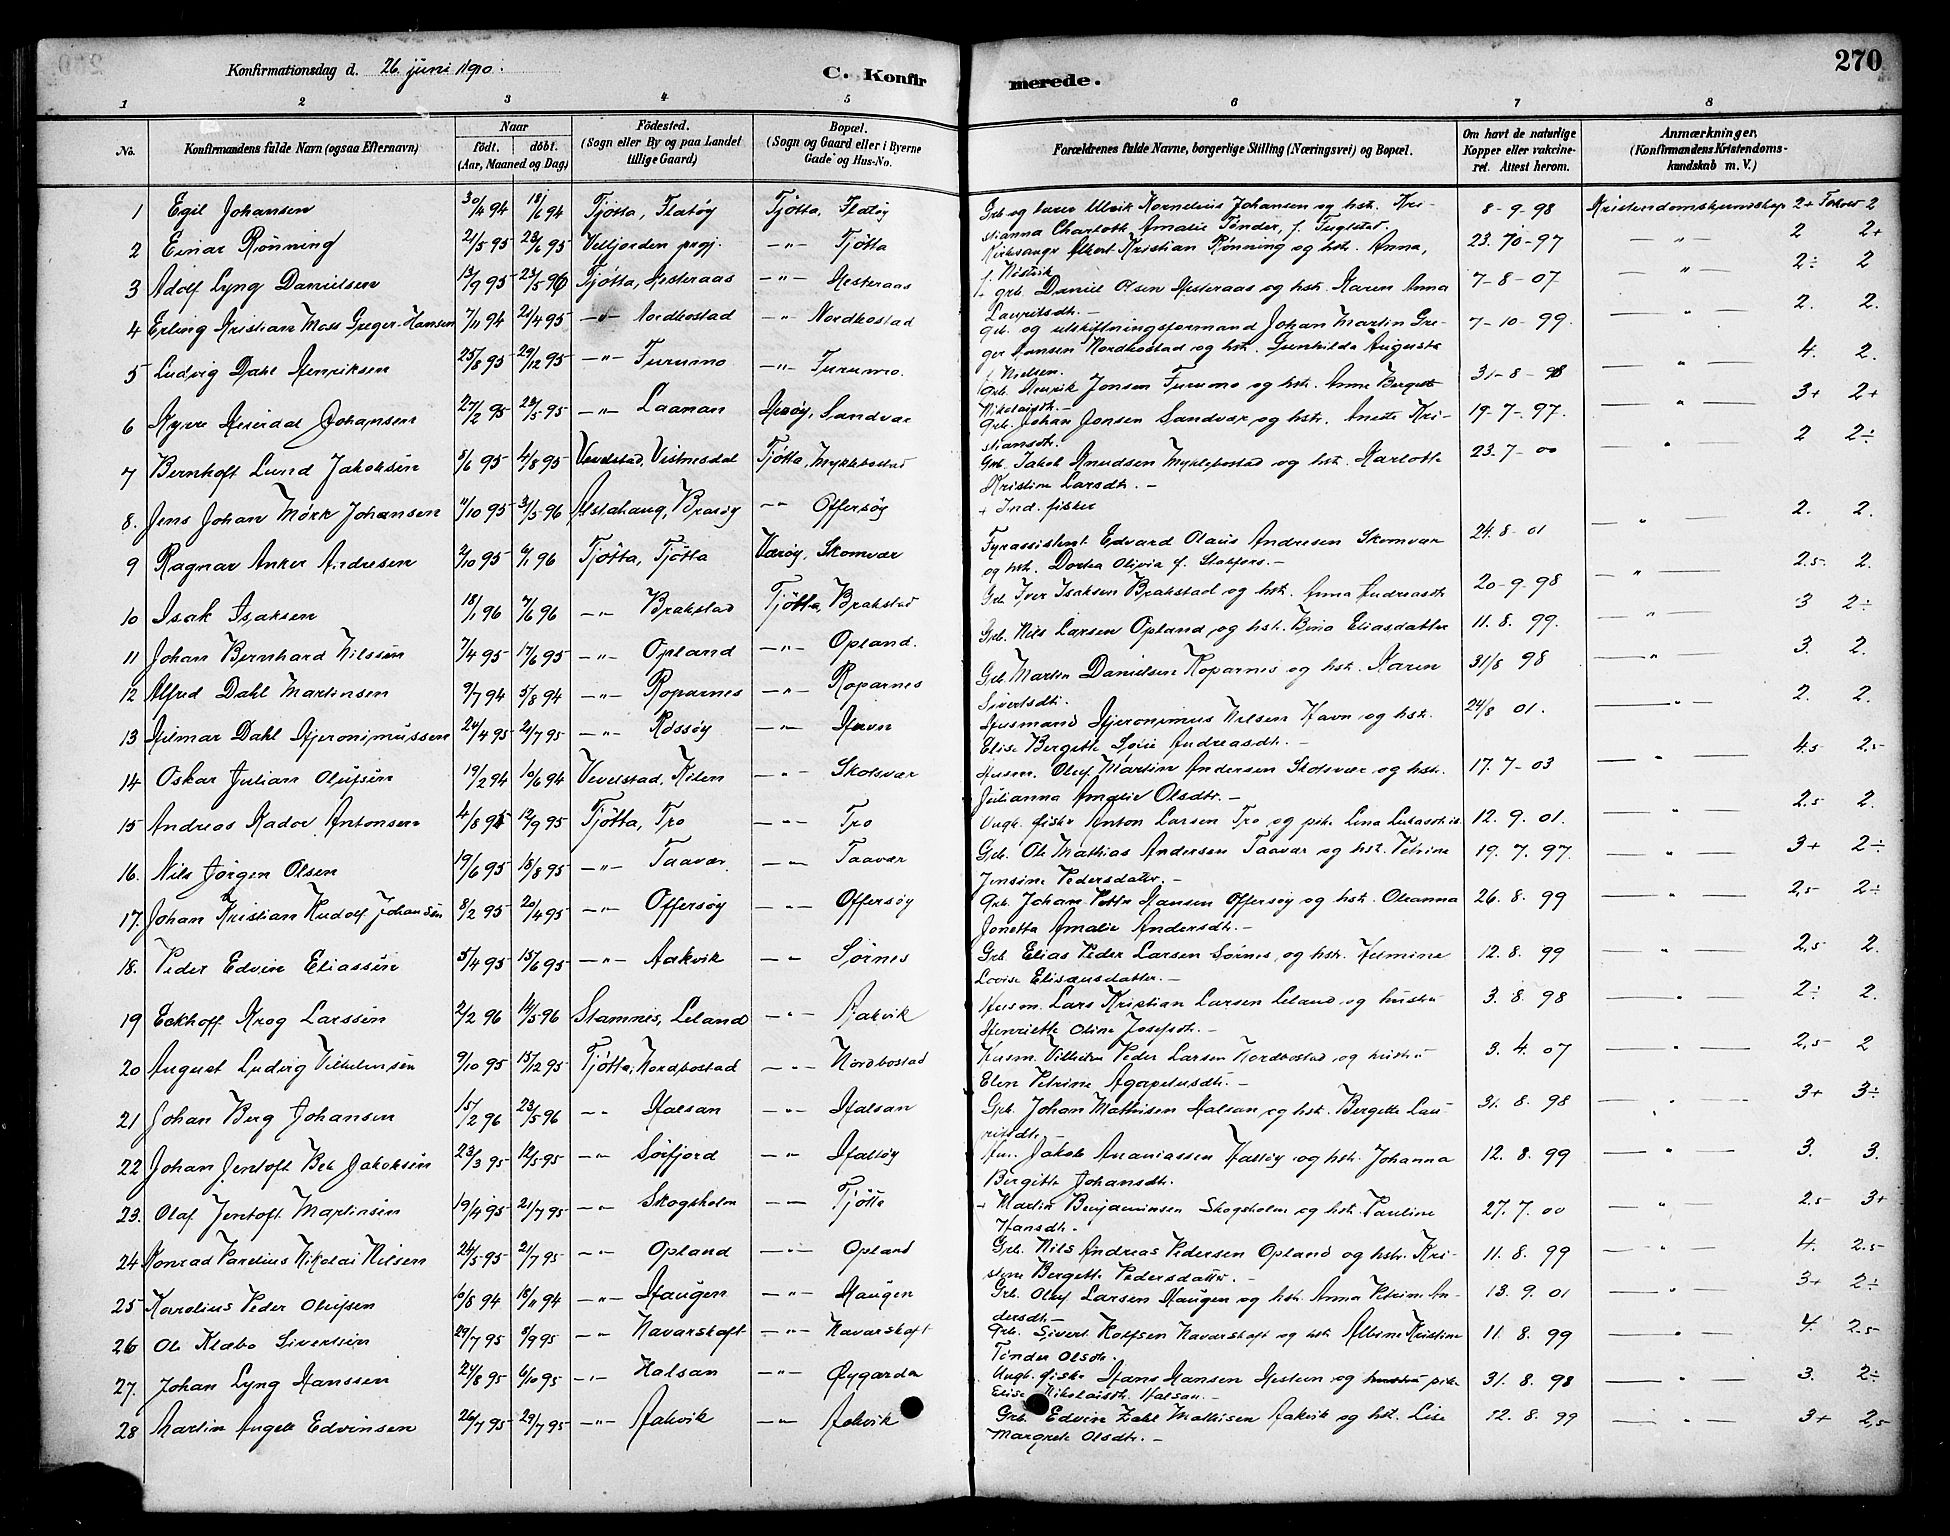 Konfirmationsdag d. 26. juni 1910.
C. Konfirmerede.
270
1 2 3 4 5 6 7 8
No. Konfirmandens fulde Navn (ogsaa Efternavn) Naar født. døbt. (Aar, Maaned og Dag) Födested. (Sogn eller By og paa Landet tillige Gaard) Bopæl. (Sogn og Gaard eller i Byerne Gade og Hus-No. Forældrenes fulde Navne, borgerlige Stilling (Næringsvei) og Bopæl. Om havt de naturlige Kopper eller vakcineret. Attest herom. Anmærkninger. (Konfirmandens Kristendomskundskab m. V.)
1 Egil Johansen 30/4 94 18/6 94 Tjøtta, Flatøy Tjøtta, Flatøy Grb og lærer Ulrik Kornelius Johansen og hst. Kristianna Charlotte Amalie Tønder, f. Fuglstad 8-9-98 Kristendomskunnskap 2+ 2
2 Einar Rønning 21/5 95 23/6 95 Velfjorden prgj. -"- Tjøtta Kirkesanger Albert Kristian Rønning og hst. Anna, f. Nistvik 23.10-97 -"- 2 2+
3 Adolf Lyng Danielsen 13/9 95 23/5 96 Tjøtta, Hesteraas -"- Hesteraas grb. Daniel Olsen Hesteraas og hst. Karen Anna Lauritsdt.- 7-8-07 -"- 2÷ 2
4 Erling Kristian Moss Greger-Hansen 7/11 94 21/4 95 -"- Nordbostad -"- Nordbostad gb. og utskiftningsformand Johan Martin Greger Hansen Nordbostad og hst. Gunhilda Augusta f. Nielsen. 7-10-99. -"- 2. 2.
5 Ludvig Dahl Henriksen 25/8 95 29/12 95 -"- Furumo -"- Furumo. Grb. Henrik Jonsen Furumo og hst. Anne Bergete Nikolaisdt.- 31-8-98 -"- 4. 2.
6 Kyrre Heierdal Johansen 27/2 95 23/5 95 -"- Laanan Herøy, Sandvær Grb. Johan Jonsen Sandvær og hst. Anette Kristiansdt. 19-7-97. -"- 3+ 2+
7 Bernhoft Lund Jakobsen 5/6 95 4/8 95 Vevelstad, Vistnesdal Tjøtta, Myklebostad Grb. Jakob Knudsen Myklebostad og hst. Karlotte Kristine Larsdtr.- 23.7-00 -"- 2 2÷
8. Jens Johan Mörk Johansen 11/10 95 31/5 96 Alstahaug, Brasøy -"- Offersøy + Ind. fisker -"- 2. 2.
9 Ragnar Anker Andresen 2/10 95 6/1 96 Tjøtta, Tjøtta Værøy, Skomvær Fyrassistent Edvard Olaus Andresen Skomvær og hst. Dortea Olivia f. Stabfors.- 24.8-01 -"- 2.5- 2.
10 Isak Isaksen 18/1 96 7/6 96 -"- Brakstad Tjøtta, Brakstad Grb Iver Isaksen Brakstad og hst. Anna Andreasdt 20-9-98 -"- 3 2÷
11 Johan Bernhard Nilssen 7/4 95 17/6 95 -"- Opland -"- Opland. Grb. Nils Larsen Opland og hst. Bina Eliasdatter 11.8.99. -"- 3. 2.
12 Alfred Dahl Martinsen 9/7 94 5/8 94 -"- Roparnes -"- Roparnes Grb Martin Danielsen Roparnes og hst. Karen Sivertsdt. 31/8 98 -"- 2. 2.
13 Hilmar Dahl Hjeronimussen 24/4 95 21/7 95 -"- Røssøy -"- Havn Husmand Hjeronimus Nilsen Havn og hst. Elise Bergette Sofie Andreasdt.- 24/8 01. -"- 4.5 2.5-
14 Oskar Julian Olufsen 19/2 94 10/6 94 Vevelstad, Kilen -"- Skotsvær Husm. Oluf Martin Andersen Skotsvær og hst. Julianna Amalie Olsdtr.- 17.7-03 -"- 2.5 2.
15 Andreas Rador Antonsen 4/8 95 12/9 95 Tjøtta, Tro -"- Tro Ungk. fisker Anton Larsen Tro og pike Lina Lukasdt 12.9.01. -"- 3+ 2÷
16. Nils Jørgen Olsen 19/6 95 18/8 95 -"- Taavær -"- Taavær Grb. Ole Mathias Andersen Taavær og hst. Petrine Jensine Pedersdatter.- 19.7.97. -"-
17. Johan Kristian Rudolf Johansen 8/2 95 20/4 95 -"- Offersøy -"- Offersøy Grb. Johan Petter Hansen Offersøy og hst. Oleanna Jonetta Amalie Andersdt.- 26.8.99 -"- 2,5- 2÷
18. Peder Edvin Eliassen 5/4 95 15/6 95 -"- Aakvik -"- Sørnes Grb. Elias Peder Larsen Sørnes, og hst. Hermine Lovise Eliseusdatter.- 12.8.99 -"- 2,5 2.
19 Eckhoff Krog Larssen 2/2 96 14/5 96 Stamnes, Leland -"- Aakvik Husm. Lars Kristian Larsen Leland og hustru Henriette Oline Josefsdt.- 3.8.98 -"- 2÷ 2.
20 August Ludvig Vilhelmsen 9/10 95 15/12 95 Tjøtta, Nordbostad -"- Nordbostad Husm. Vilhelm Peder Larsen Nordbostad og hustru Elen Petrine Agapetusdt.- 3.4.07 -"- 2,5- 2
21 Johan Berg Johansen 15/2 96 23/5 96 -"- Halsan -"- Halsan Grb. Johan Mathisen Halsan og hst. Bergette Lauritsdt.- 31.8.98 -"- 3+ 3÷
22 Johan Jentoft Bek Jakobsen 23/3 95 12/5 95 -"- Sørfjord -"- Flatøy Hm. Jakob Ananiassen Flatøy og hst. Johanna Bergitte Johansdt. 12.8.99 -"- 3. 3.
23. Olaf Jentoft Martinsen 19/4 95 21/7 95 -"- Skogsholm -"- Tjøtta + Martin Benjaminsen Skogsholm og hst. Pauline Hansdt. 27.7.00 -"- 2.5 3+
24 Konrad Parelius Nikolai Nilsen 24/5 95 21/7 95 -"- Opland -"- Opland Grb. Nils Andreas Pedersen Opland og hst. Kristine Bergette Pedersdatter.- 11.8.99 -"- 4. 2.5-
25 Karolius Peder Olufsen 10/8 94 18/11 94 -"- Haugen -"- Haugen Grb. Oluf Larsen Haugen og hst. Anna Petrine Andersdt.- 13.9.01 -"- 3+ 2÷
26 Ole Klæbo Sivertsen 29/7 95 8/9 95 -"- Navarshaft -"- Navarshaft Grb. Sivert Rolfsen Navarshaft og hst Albine Kristine Tønder Olsdt. 11.8.99 -"- 4. 2.5
27. Johan Lyng Hanssen 24/8 95 6/10 95 -"- Halsan -"- Øygarden Ungk. fisker Hans Hansen Hestun og pike Elise Nikolaisdt. Halsan.- 31.8.98 -"- 3. 2÷
28 Martin Angell Edvinsen 26/7 95 29/7 95 -"- Aakvik -"- Aakvik Grb. Edvin Zahl Mathisen Aakvik og hst. Lise Margrete Olsdtr.- 12.8.99 -"- 3+ 2,5